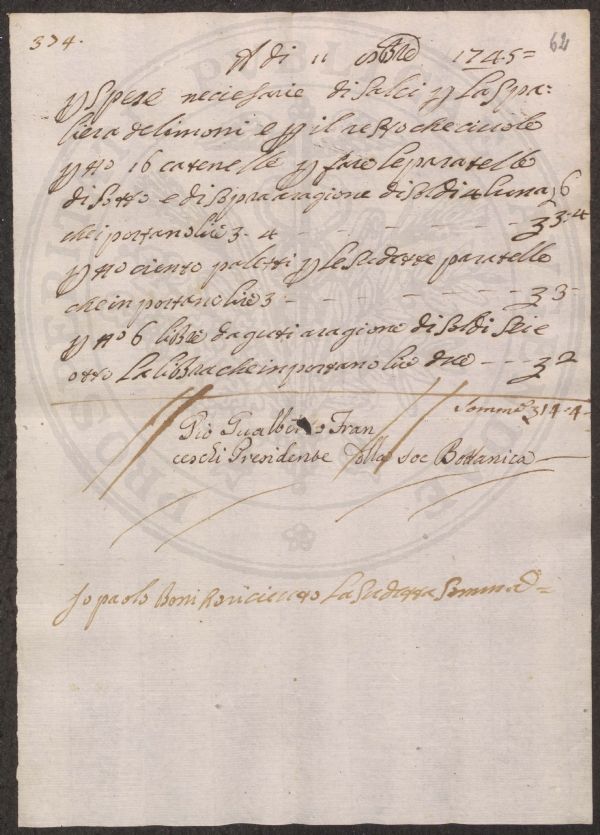 374.
62
A di 11 8bre 1745=
p spese neciesarie di salci p la spa=
liera de limoni e p il resto che ciuole
p tto 16 catenelle p fare le paratelle
di sotto e di sopra a ragione di soldi 4 luna 6
che iportano lire 3-4 - - - - - - 33-4
p tto ciento paletti p le sudette paratelle
che inportano lire 3 - - - - - - 33-
p tto 6 libbre daguti a ragione di soldi
otto la libbra che inportano lire due - - - 32
Somma 314-4-
Gio Gualberto Fran
ceschi Presidente della soc Bottanica
Jo paolo Boni Ho riceuto La sudetta somma =